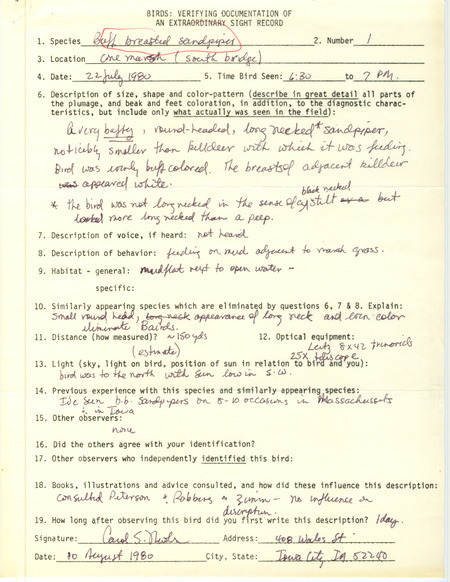 BIRDS: VERIFYING DOCUMENTATION OF
AN EXTRAORDINARY SIGHT RECORD
1. Species Buff breasted sandpiper 2. Number 1
3. Location Cone marsh (south bridge)
4. Date: 22 July 1980 5. Time Bird Seen: 6:30 to 7 PM.
6. Description of size, shape and color-pattern (describe in great detail all parts of
the plumage, and beak and feet coloration, in addition, to the diagnostic charac-
teristics, but include only what actually was seen in the field):
A very buffy, round-headed, long necked* sandpiper,
noticibly smaller than killdeer with which it was feeding.
Bird was evenly buff colored. The breasts of adjacent killdeer
appeared white.
* the bird was not long necked in the sense of a black necked stilt but
looked more long necked than a peep.
7. Description of voice, if heard: not heard
8. Description of behavior: feeding on mud adjacent to marsh grass.
9. Habitat - general: mudflat next to open water -
specific:
10. Similarly appearing species which are eliminated by questions 6, 7 & 8. Explain:
Small round head, long neck appearance of long neck and even color
eliminate Bairds.
11. Distance (how measured)? ~150 yds 12. Optical equipment:
(estimate) Leitz 8x42 trinovids
25X telescope
13. Light (sky, light on bird, position of sun in relation to bird and you):
bird was to the north with sun low in S.W.
14. Previous experience with this species and similarly appearing species:
I've seen b.b. sandpipers on 8-10 occasions in Massachusetts
& in Iowa
15. Other observers:
none
16. Did the others agree with your identification?
17. Other observers who independently identified this bird:
18. Books, illustrations and advice consulted, and how did these influence this description:
Consulted Peterson & Robbins & Zimm - no influence on
description.
19. How long after observing this bird did you first write this description? 1 day.
Signature: Carol S. Address: 408 Wales St.
Date: 10 August 1980 City, State: Iowa City IA 52240